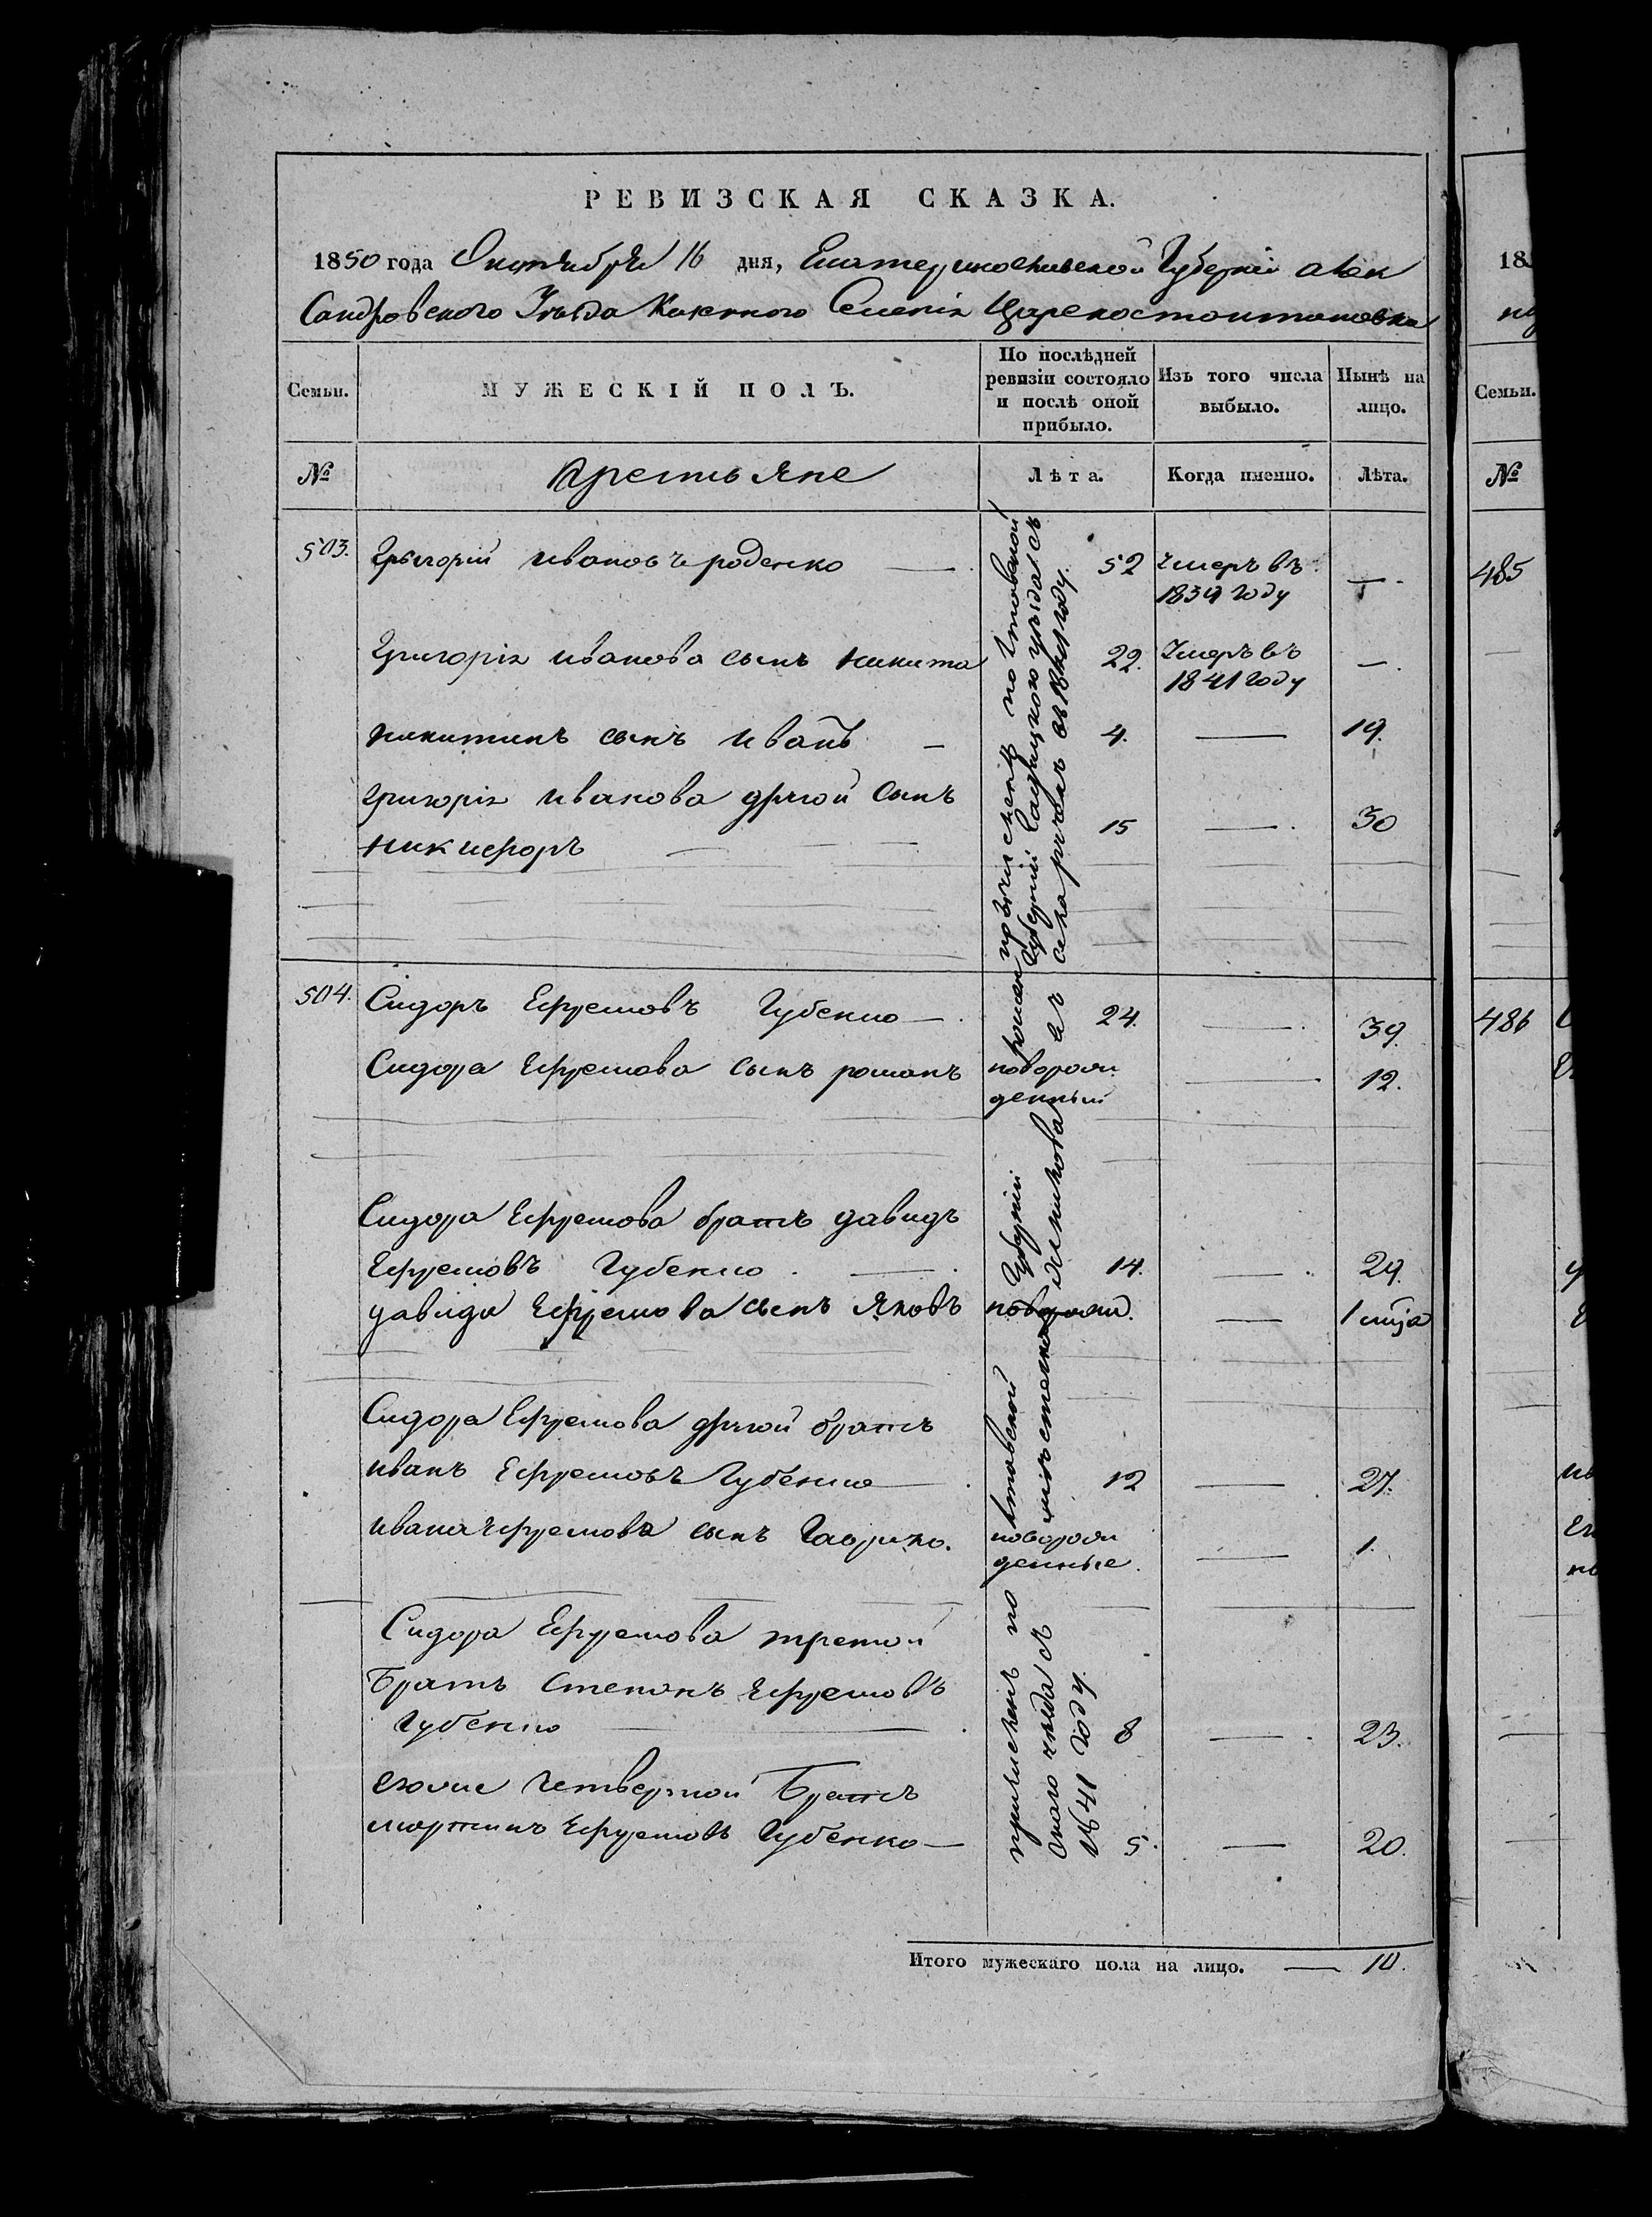 РЕВИЗСКАЯ СКАЗКА.
1850 года Октября 16 дня, Екатеринославской Губерніи алек
Сандровского Уѣзда Казенного Селенія Царекостантиновка
Семьи.
МУЖЕСКІЙ ПОЛЪ.
По послѣдней ревизіи состояло и послѣ оной прибыло.
Изъ того числа выбыло.
Нынѣ на лицо.
№
Крестьяне
Лѣта.
Когда именно.
Лѣта.
503. Григорій Ивановъ роденко — 52 Умеръ въ 1834 году —
Григорія Иванова сынъ Никита 22. Умеръ въ 1841 году —
Никитинъ сынъ Иванъ — 4. — 19.
Григорія Иванова другой Сынъ
Никифоръ — 15 — 30
причисленъ по Полтавской
Губерніи Гадяцкого уѣзда съ
году.
504. Сидоръ Ефремовъ Губенко — 24. — 39.
Сидора Ефремова Сынъ романъ новорожденный — 12.
Сидора Ефремова братъ давидъ
Ефремовъ Губенко — 14. — 29.
давида Ефремова сынъ Яковъ новорожд. — 1
Сидора Ефремова другой братъ
иванъ Ефремовъ Губенко — 12 — 27.
ивана Ефремова сынъ Гаврило. новорожденные. — 1.
Сидора Ефремова третій
Братъ Степанъ Ефремовъ
Губенко — 8 — 23.
четвертой Братъ
мартинъ Ефремовъ Губенко — 5. — 20.
причисленъ по Полтавской Губерніи
уѣзда съ
1841 году.
Итого мужескаго пола на лицо. — 10.
18
Семьи.
№
485
486